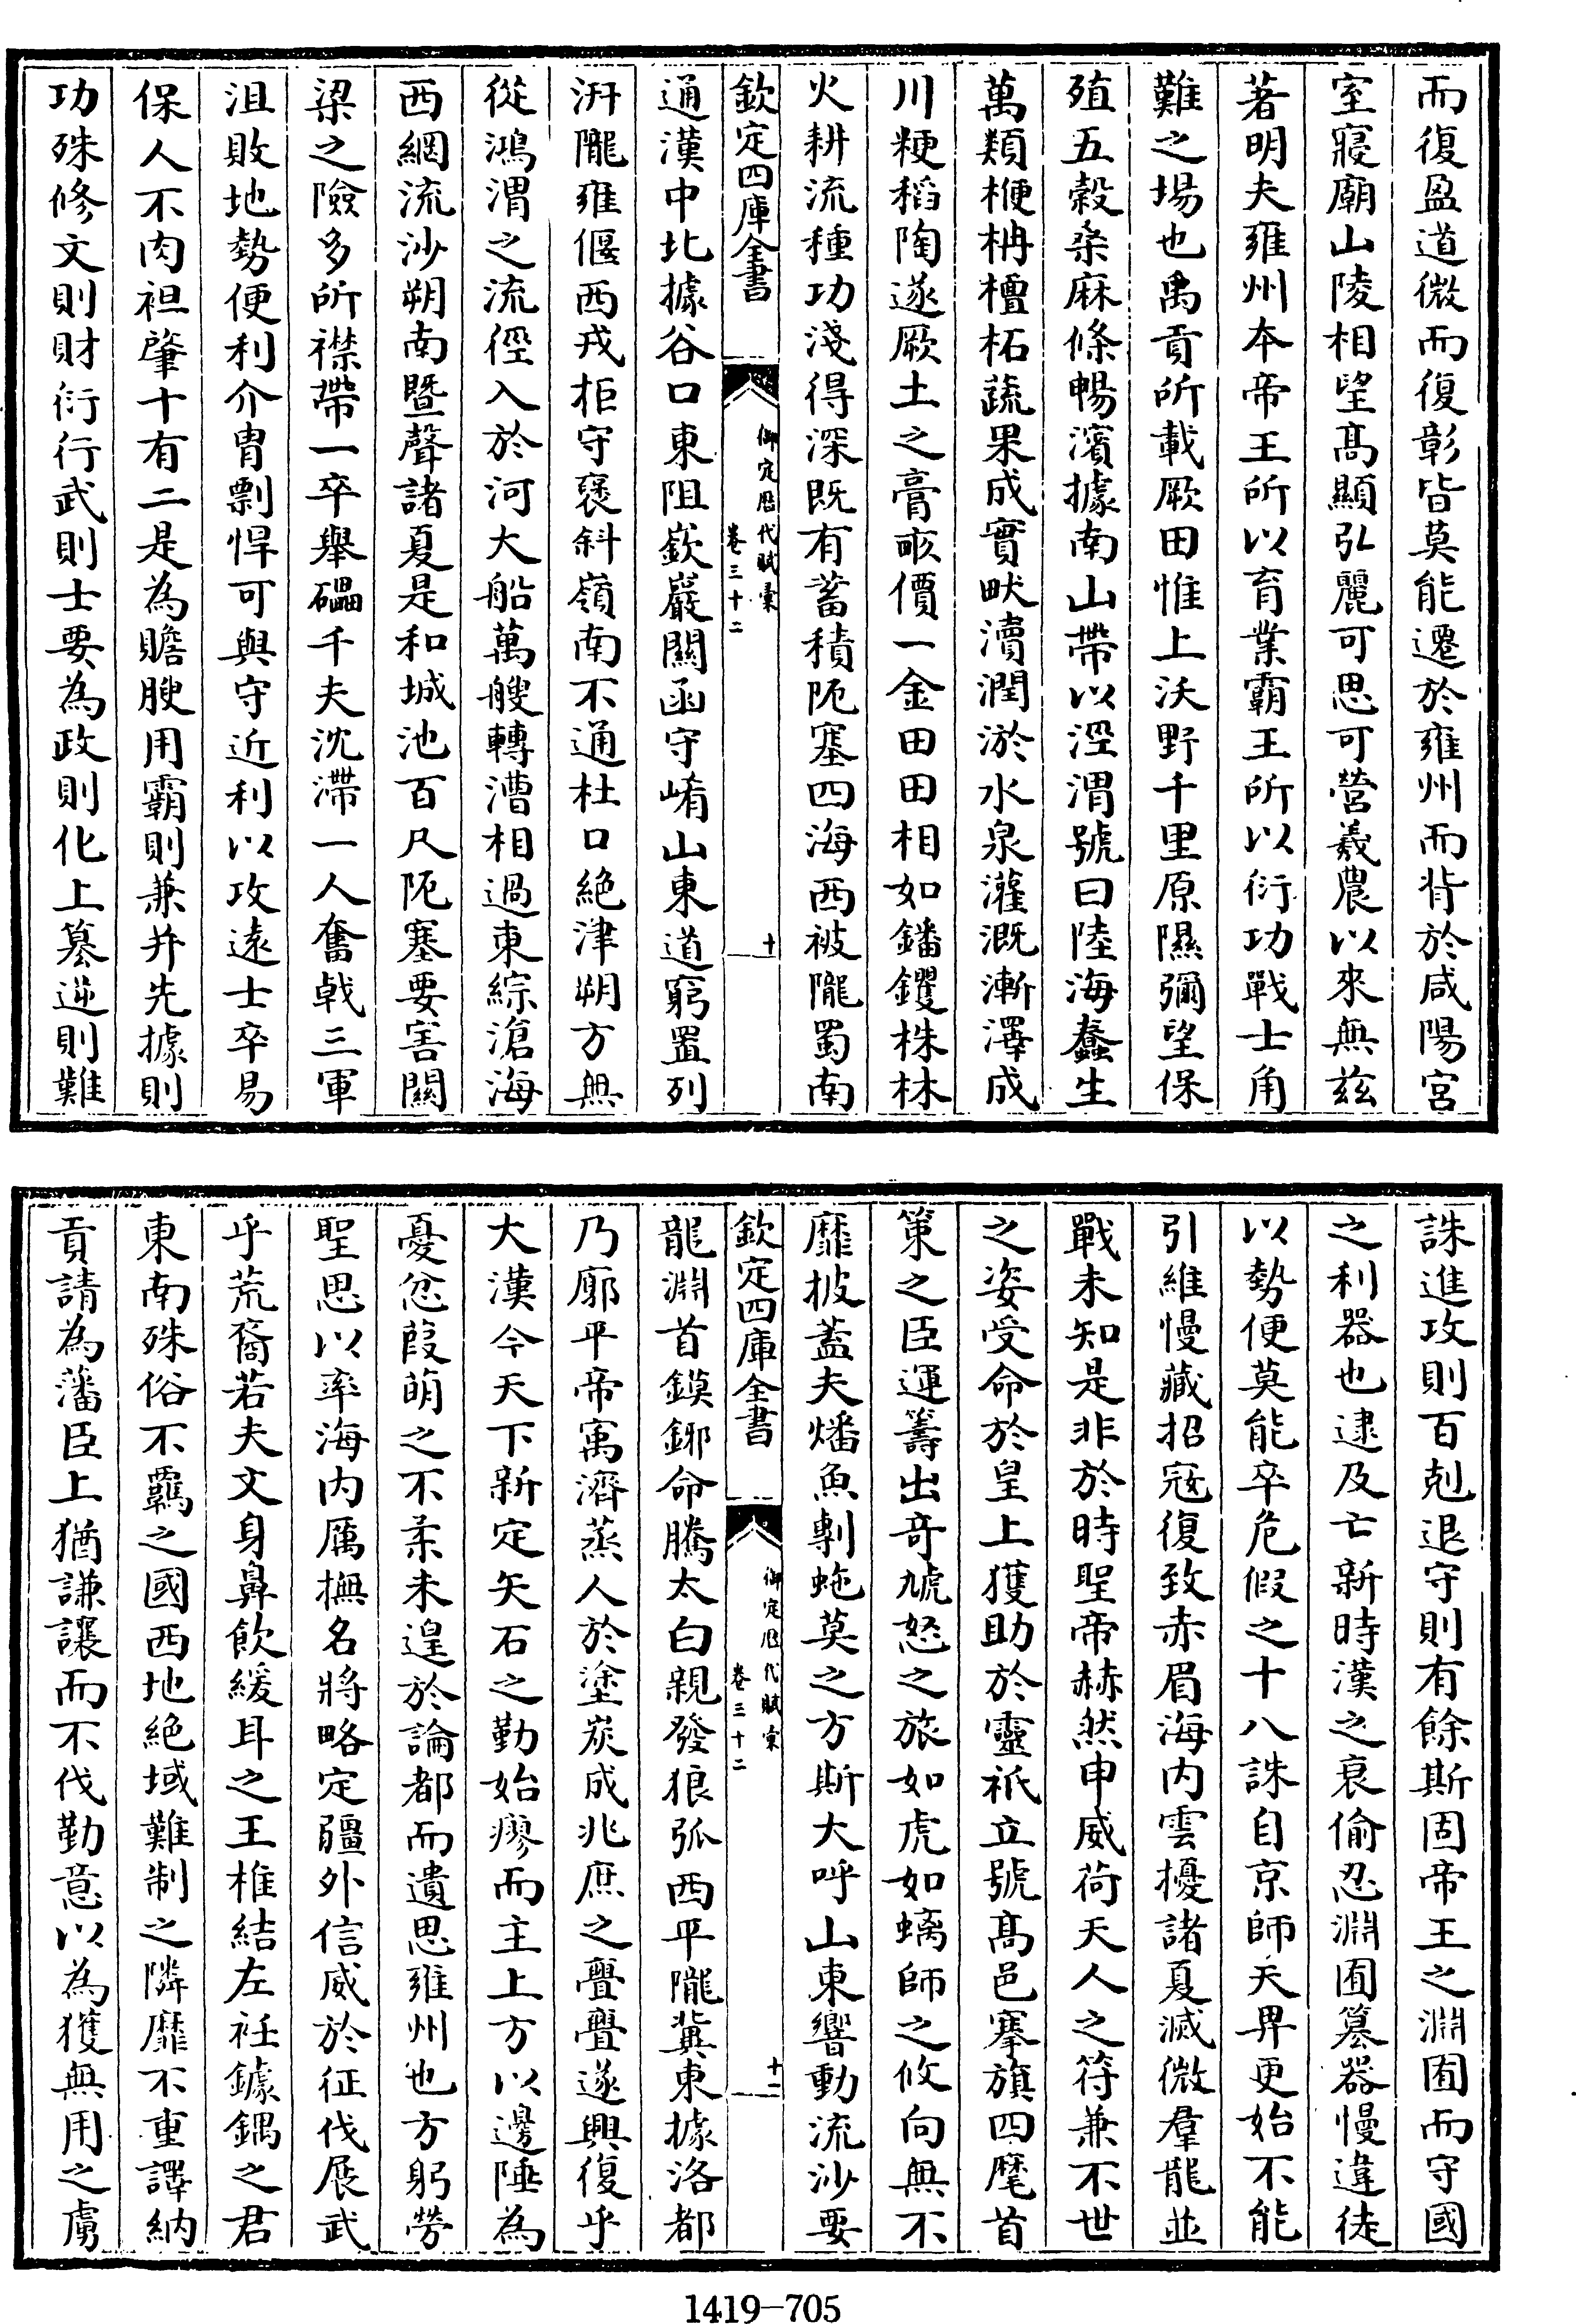 而復盈道微而復彰皆莫能遷於雍州而背於咸陽宮
室寢廟山陵相望高顯弘麗可思可營羲農以來無兹
著明夫雍州本帝王所以育業霸王所以衍功戰士角
難之場也禹貢所載厥田惟上沃野千里原隰彌望保
殖五榖桑麻條暢濱據南山帶以涇渭號曰陸海蠢生
萬類楩柟檀柘蔬果成實畎瀆潤淤水泉灌溉漸澤成
川粳稻陶遂厥土之膏畝價一金田田相如鐇钁株林
火耕流種功淺得深既有蓄積阨塞四海西被隴蜀南
欽定四庫全書
御定厯代賦彙
卷三十二
十
通漢中北據谷口東阻嶔巖關函守崤山東道窮置列
汧隴雍偃西戎拒守褒斜嶺南不通杜口絶津朔方無
從鴻渭之流徑入於河大船萬艘轉漕相過東綜滄海
西綱流沙朔南暨聲諸夏是和城池百尺阨塞要害關
梁之險多所襟帶一卒舉礧千夫沈滯一人奮戟三軍
沮敗地勢便利介胄剽悍可與守近利以攻遠士卒易
保人不肉袒肇十有二是為贍腴用霸則兼并先據則
功殊修文則財衍行武則士要為政則化上簒逆則難
誅進攻則百剋退守則有餘斯固帝王之淵囿而守國
之利器也逮及亡新時漢之衰偷忍淵囿簒器慢違徒
以勢便莫能卒危假之十八誅自京師天畀更始不能
引維慢藏招寇復致赤眉海内雲擾諸夏滅微羣龍並
戰未知是非於時聖帝赫然申威荷天人之符兼不世
之姿受命於皇上獲助於靈祇立號高邑搴旗四麾首
策之臣運籌出奇虓怒之旅如虎如螭師之攸向無不
靡披蓋夫燔魚剸蛇莫之方斯大呼山東響動流沙要
欽定四庫全書
御定厯代賦彙
卷三十二
十一
龍淵首鏌鋣命騰太白親發狼弧西平隴冀東據洛都
乃廓平帝寓濟蒸人於塗炭成兆庶之亹亹遂興復乎
大漢今天下新定矢石之勤始瘳而主上方以邊陲為
憂忿葭萌之不柔未遑於論都而遺思雍州也方躬勞
聖思以率海内厲撫名將略定疆外信威於征伐展武
乎荒裔若夫文身鼻飲緩耳之王椎結左袵鐻鍝之君
東南殊俗不羈之國西地絶域難制之隣靡不重譯納
貢請為藩臣上猶謙讓而不伐勤意以為獲無用之虜
1419-705